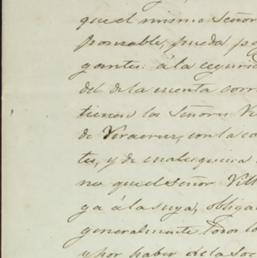 que el mismo Señor
ponsable, pueda p
gantes: á la seguri
del de la cuenta corr
tienen los Señores V
de Veracruz, con la co
tes, y de cualesquiera
na que el señor Vill
ga á la suya, obliga
generalmente todos lo
y por haber de la Soc